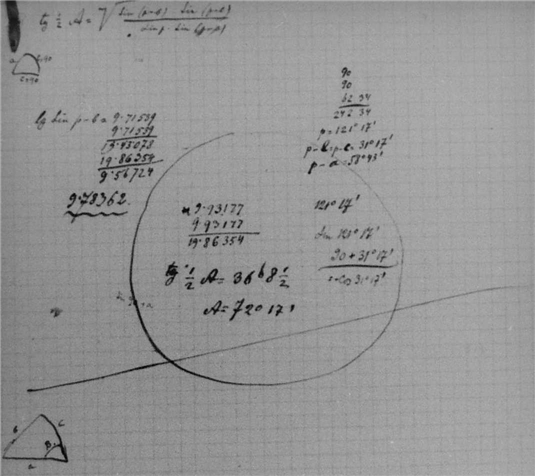 tg ½ A = √ sin (p-b) · sin (p-c)
sin p · sin (p-a)
c=90
90
90
62 34
242 34
p = 121° 17'
p-b = p-c = 31° 17'
p-a = 58° 43'
lg sin p-b = 9.71539
9.71539
19.43078
19.86354
9.56724
9.78362
9.93177
9.93177
19.86354
121° 17'
sin 121° 17'
90 + 31° 17'
= cos 31° 17'
tg ½ A = 36 8 ½
A = 72° 17'
b
c
B
a